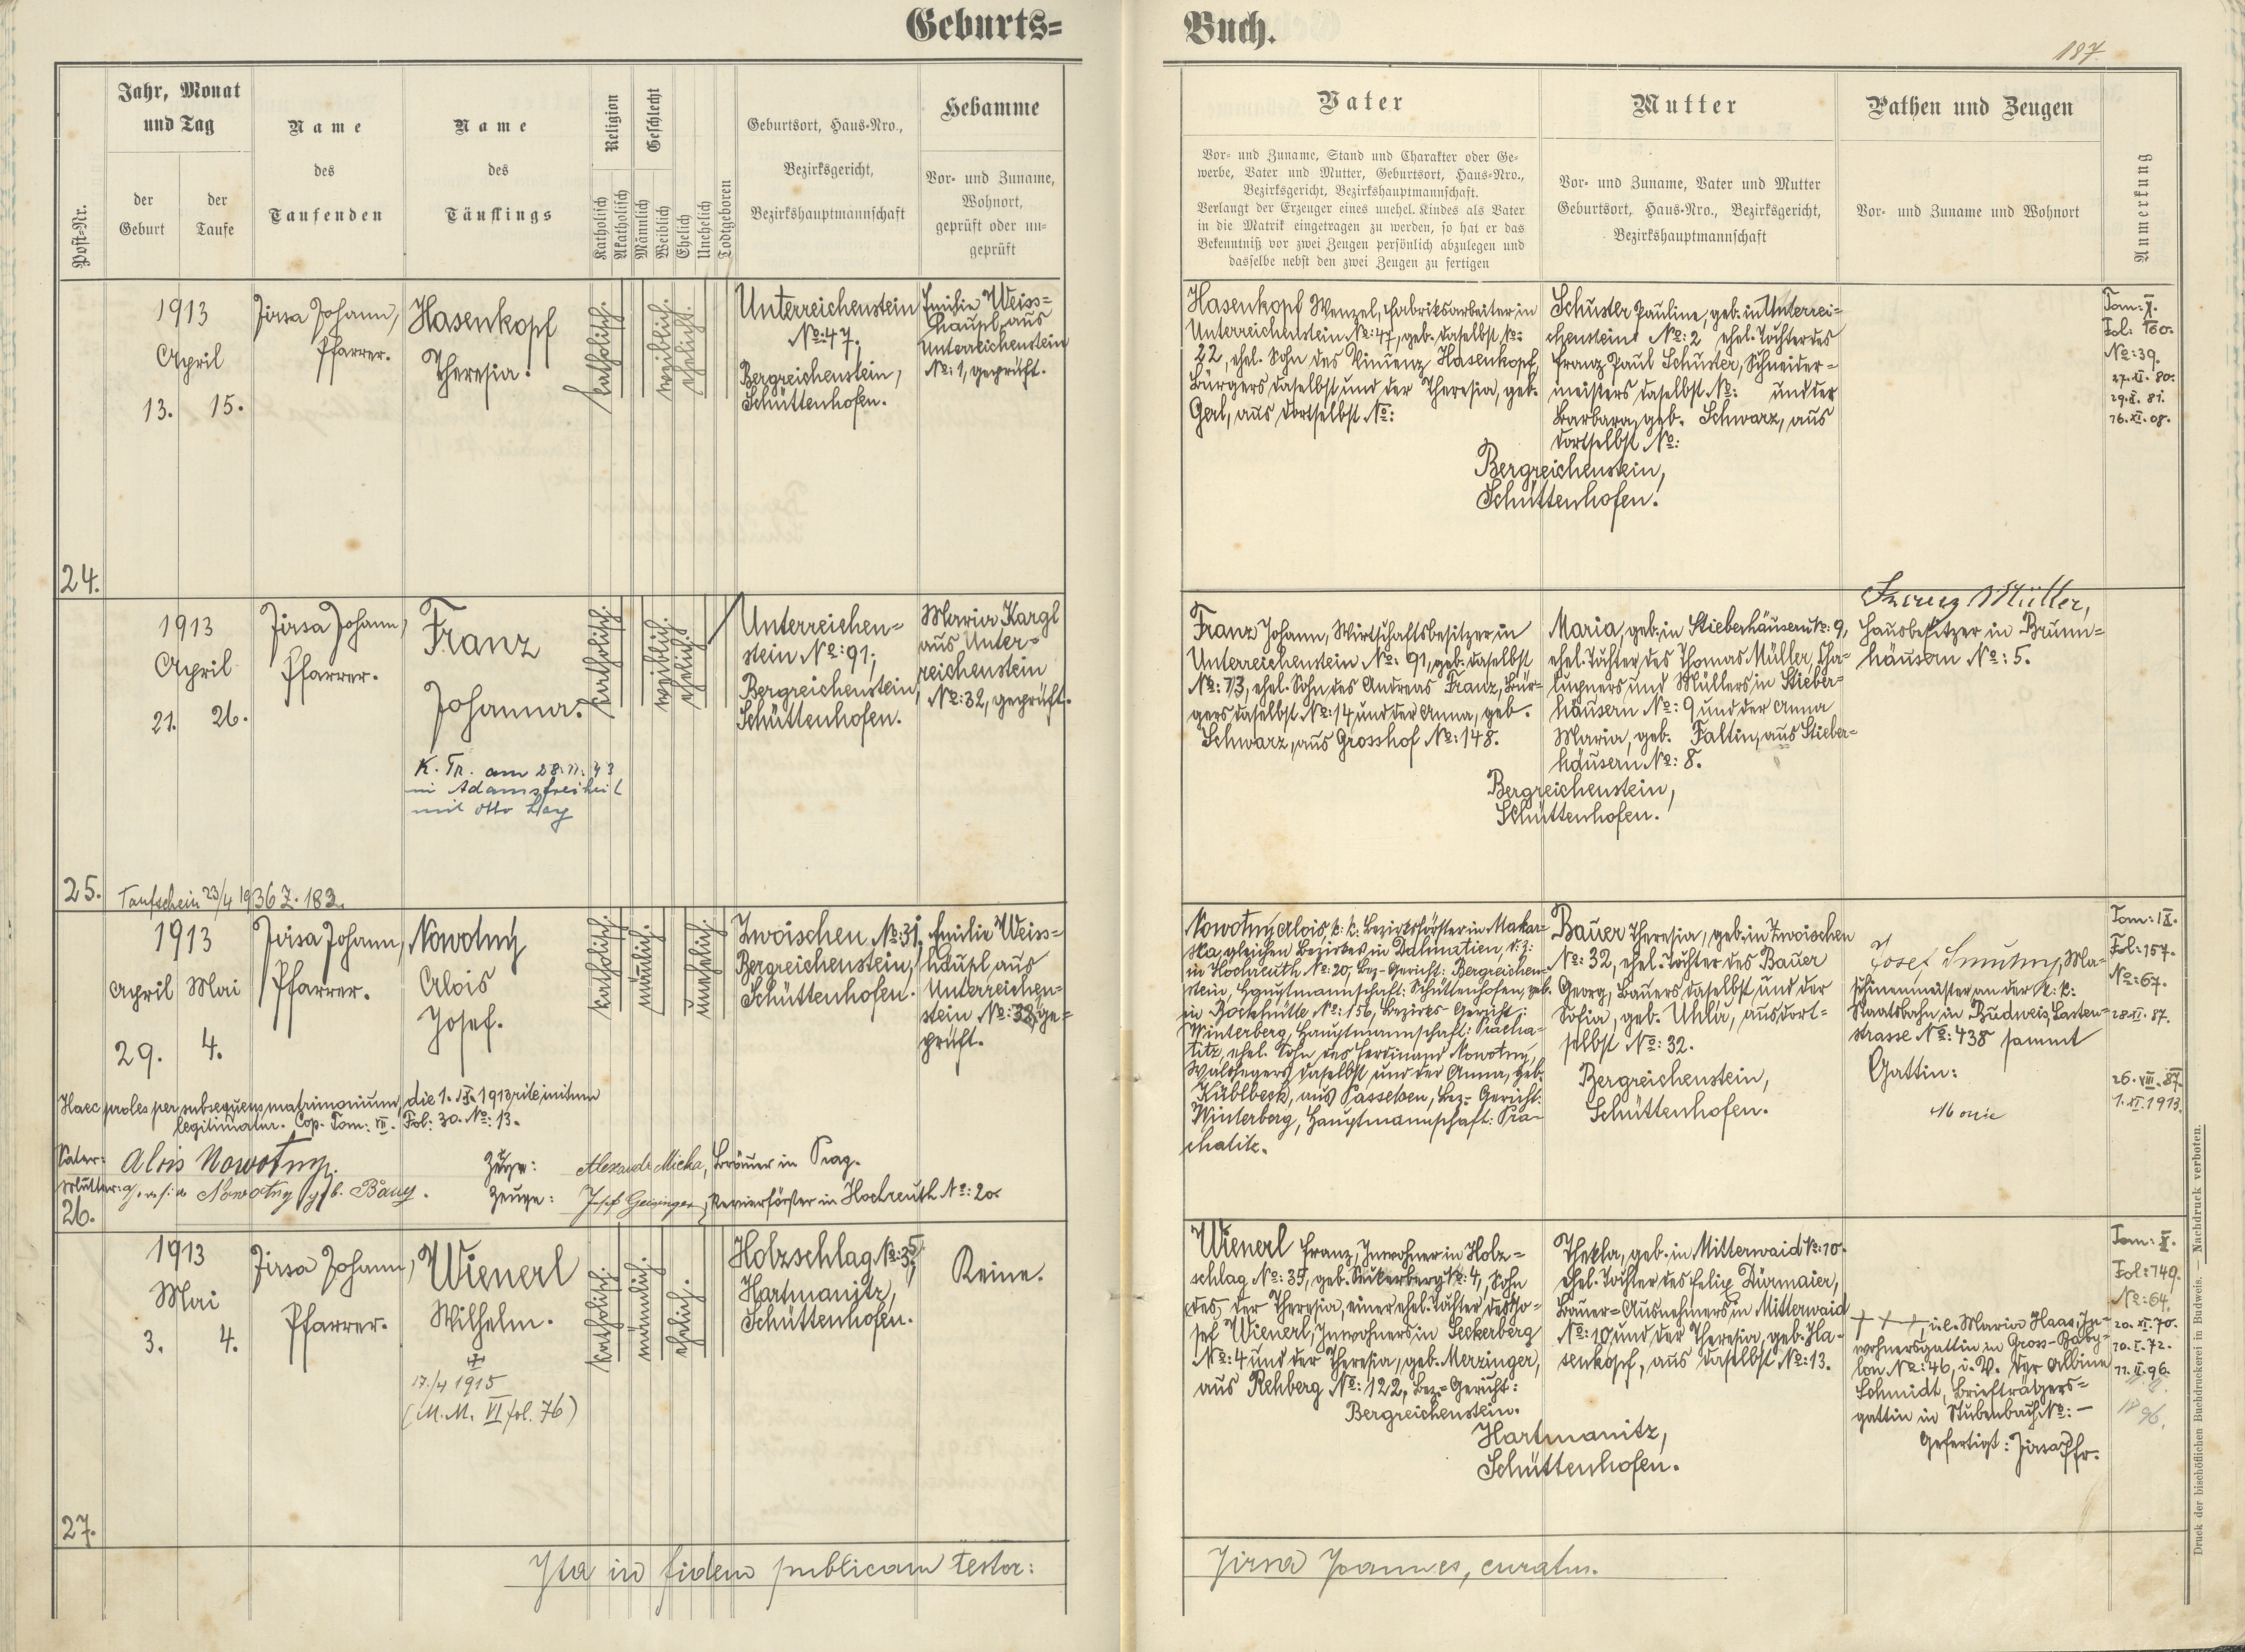 Geburts=
Buch.
187.
Post-Nr.
Jahr, Monat
und Tag
der
Geburt
der
Taufe
Name
des
Taufenden
Name
des
Täuflings
Religion
Katholisch
Akatholisch
Geschlecht
Männlich
Weiblich
Ehelich
Unehelich
Todtgeboren
Geburtsort, Haus-Nro.,
Bezirksgericht,
Bezirkshauptmannschaft
Hebamme
Vor- und Zuname,
Wohnort,
geprüft oder un-
geprüft
Vater
Vor- und Zuname, Stand und Charakter oder Ge-
werbe, Vater und Mutter, Geburtsort, Haus-Nro.,
Bezirksgericht, Bezirkshauptmannschaft.
Verlangt der Erzeuger eines unehel. Kindes als Vater
in die Matrik eingetragen zu werden, so hat er das
Bekenntniß vor zwei Zeugen persönlich abzulegen und
dasselbe nebst den zwei Zeugen zu fertigen
Mutter
Vor- und Zuname, Vater und Mutter
Geburtsort, Haus-Nro., Bezirksgericht,
Bezirkshauptmannschaft
Pathen und Zeugen
Vor- und Zuname und Wohnort
Anmerkung
24.
1913
April
13. 15.
Jirsa Johann,
Pfarrer.
Hasenkopf
Theresia.
katholisch.
weiblich.
ehelich.
Unterreichenstein
No: 47.
Bergreichenstein,
Schüttenhofen.
Emilie Weiss=
häupl aus
Unterreichenstein
No: 1, geprüft.
Hasenkopf Wenzel, Fabriksarbeiter in
Unterreichenstein No: 47, geb. daselbst No:
22, ehel. Sohn des Vinzenz Hasenkopf,
Bürgers daselbst und der Theresia, geb.
Gerl, aus dortselbst No:
Schuster Pauline, geb. in Unterrei=
chenstein No: 2 ehel. Tochter des
Franz Paul Schuster, Schneider=
meisters daselbst No: und der
Barbara, geb. Schwarz, aus
dortselbst No:
Bergreichenstein,
Schüttenhofen.
Tom: X.
Fol: 160.
No: 39.
27. XI. 80.
29. X. 81.
16. XI. 08.
25.
1913
April
21. 26.
Jirsa Johann,
Pfarrer.
Franz
Johanna.
K. Tr. am 28. 11. 43
in Adamsfreiheit
mit Otto Lay
Taufschein 23/4 1936 Z. 183.
katholisch.
weiblich.
ehelich.
Unterreichen=
stein No: 91;
Bergreichenstein,
Schüttenhofen.
Maria Kargl
aus Unter=
reichenstein
No: 32, geprüft.
Franz Johann, Wirtschaftsbesitzer in
Unterreichenstein No: 91, geb. daselbst
No: 73, ehel. Sohn des Andreas Franz, Bür=
gers daselbst No: 14 und der Anna, geb.
Schwarz, aus Grosshof No: 148.
Maria, geb. in Stieberhäusern No: 9,
ehel. Tochter des Thomas Müller, Cha=
lupners und Müllers in Stieber=
häusern No: 9 und der Anna
Maria, geb. Faltin, aus Stieber=
häusern No: 8.
Bergreichenstein,
Schüttenhofen.
Franz Müller,
Hausbesitzer in Brunn=
häusern No: 5.
26.
1913
April Mai
29. 4.
Jirsa Johann,
Pfarrer.
Nowotny
Alois
Josef.
katholisch.
männlich.
unehelich.
Zwoischen No: 31,
Bergreichenstein,
Schüttenhofen.
Emilie Weiss=
häupl aus
Unterreichen=
stein No: 38, ge=
prüft.
Nowotny Alois k: k: Bezirksförster in Makar=
ska, gleichen Bezirkes in Dalmatien, d. z:
in Hochreuth No: 20, Bez-Gericht: Bergreichen=
stein, Hauptmannschaft: Schüttenhofen, geb.
in Bockhütte No: 156, Bezirks-Gericht:
Winterberg, Hauptmannschaft: Pracha=
titz, ehel. Sohn des Ferdinand Nowotny,
Waldhegers daselbst und der Anna, geb.
Küblbeck, aus Passeken, Bez.- Gericht:
Winterberg, Hauptmannschaft: Pra=
chatitz.
Bauer Theresia, geb. in Zwoischen
No: 32, ehel. Tochter des Bauer
Georg, Bauers daselbst und der
Sofia, geb. Uhlir, aus dort=
selbst No: 32.
Bergreichenstein,
Schüttenhofen.
Josef Smutny, Ma=
schinenmeister an der k: k:
Staatsbahn in Budweis, Lasten=
strasse No: 438 sammt
Gattin:
Marie
Tom: IX.
Fol: 157.
No: 67.
28. II. 87.
26. VIII. 87.
1. XI. 1913.
Haec proles per subsequens matrimonium, die 1. IX. 1913 rite initum
legitimatur. Cop. Tom: VII. Fol: 30. No: 13.
Vater: Alois Nowotny.
Zeuge: Alexander Micka, Brauer in Prag.
Mutter: Theresia Nowotny geb. Bauer.
Zeuge: Josef Geisinger, Revierförster in Hochreuth No: 20.
27.
1913
Mai
3. 4.
Jirsa Johann,
Pfarrer.
Wienerl
Wilhelm.
17./4 1915
(M. M. VI fol. 76)
katholisch.
männlich.
ehelich.
Holzschlag No: 35,
Hartmanitz,
Schüttenhofen.
Keine.
Wienerl Franz, Inwohner in Holz=
schlag No: 35, geb. Seckerberg No: 4, Sohn
des der Theresia, einer ehel. Tochter des Jo=
sef Wienerl, Inwohners in Seckerberg
No: 4 und der Theresia, geb. Merzinger,
aus Rehberg No: 122, Bez.-Gericht:
Bergreichenstein.
Thekla, geb. in Mitterwaid No: 10.
ehel. Tochter des Felix Dürmaier,
Bauer=Ausnehmers in Mitterwaid
No: 10 und der Theresia, geb. Ha=
senkopf, aus daselbst No: 13.
Hartmanitz,
Schüttenhofen.
+ + +, i. e. Maria Haas, In=
wohnersgattin in Gross-Baby=
lon No: 46, i. V. der Albine
Schmidt, Briefträgers=
gattin in Stubenbach No: —
Gefertigt: Jirsa Pfr.
Tom: X.
Fol: 149.
No: 64.
20. XI. 70.
10. I. 72.
11. II. 96.
Ita in fidem publicam testor:
Jirsa Joannes, curatus.
Druck der bischöflichen Buchdruckerei in Budweis. — Nachdruck verboten.